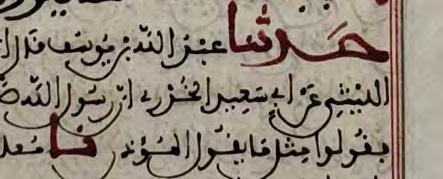 حدثنا عبد الله بن يوسف قال
الليثي عن ابي سعيد الخدري ان رسول الله
فقولوا مثل ما يقول المؤذن نا